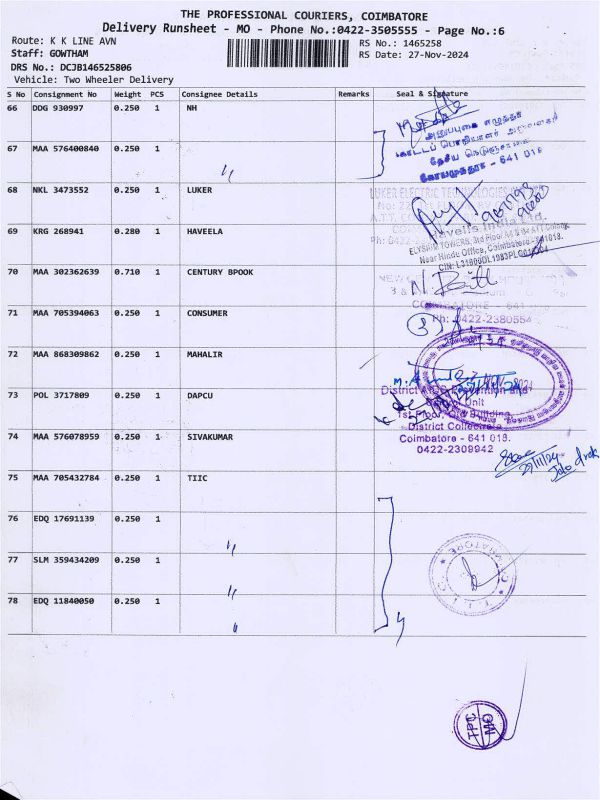 THE PROFESSIONAL COURIERS, COIMBATORE
Delivery Runsheet - MO - Phone No.:0422-3505555 - Page No.:6
Route: K K LINE AVN
RS No.: 1465258
Staff: GOWTHAM
RS Date: 27-Nov-2024
DRS No.: DCJB146525806
Vehicle: Two Wheeler Delivery
S No Consignment No Weight PCS Consignee Details Remarks Seal & Signature
66 DDG 930997 0.250 1 NH
67 MAA 576400840 0.250 1 〃
தேசிய நெடுஞ்சாலை
கோயமுத்தூர் - 641 018
68 NKL 3473552 0.250 1 LUKER
LUKER ELECTRIC TECHNOLOGIES
69 KRG 268941 0.280 1 HAVEELA
Havells India Ltd.
ELYSIUM TOWERS, 3rd Floor
Near Hindu Office, Coimbatore - 641018.
70 MAA 302362639 0.710 1 CENTURY BPOOK
COIMBATORE - 641
Ph: 0422-2380554
71 MAA 705394063 0.250 1 CONSUMER
72 MAA 868309862 0.250 1 MAHALIR
73 POL 3717809 0.250 1 DAPCU
District AIDS Prevention and
Control Unit
1st Floor, Old Building,
District Collectorate
Coimbatore - 641 018.
0422-2309942
74 MAA 576078959 0.250 1 SIVAKUMAR
27/11/24
75 MAA 705432784 0.250 1 TIIC
76 EDQ 17691139 0.250 1 〃
77 SLM 359434209 0.250 1 〃
78 EDQ 11840050 0.250 1 〃
TPC
MO